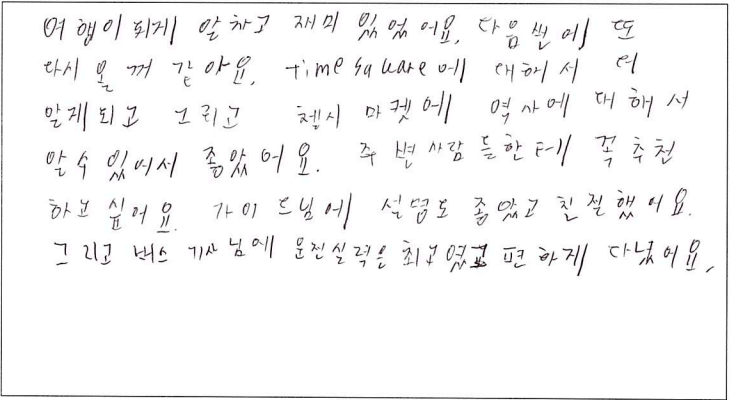 여행이 되게 알차고 재미 있었어요, 다음번에 또
다시 올 꺼 같아요, time square에 대해서 더
알게되고 그리고 첼시 마켓에 역사에 대해서
알수 있어서 좋았어요. 주변사람들한테 꼭추천
하고 싶어요. 가이드님에 설명도 좋았고 친절했어요.
그리고 버스 기사님에 운전실력은 최고였고 편하게 다녔어요,